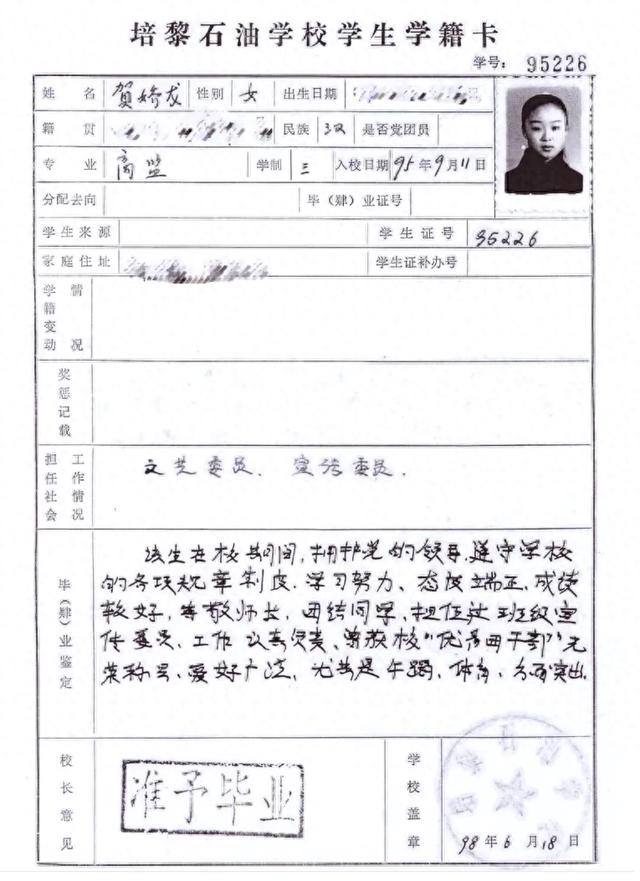 培黎石油学校学生学籍卡
学号：95226
姓名 贺娇龙 性别 女 出生日期
籍贯 民族 汉 是否党团员
专业 商监 学制 三 入校日期 95年9月11日
分配去向 毕（肄）业证号
学生来源 学生证号 95226
家庭住址 学生证补办号
学籍变动情况
奖惩记载
担任社会工作情况 文艺委员、宣传委员.
毕（肄）业鉴定
该生在校期间,拥护党的领导,遵守学校
的各项规章制度,学习努力、态度端正,成绩
较好,尊敬师长,团结同学,担任过班级宣
传委员,工作认真负责,曾获校“优秀团干部”光
荣称号,爱好广泛,尤其是午蹈,体育,方面突出.
校长意见 准予毕业 学校盖章 98年6月18日